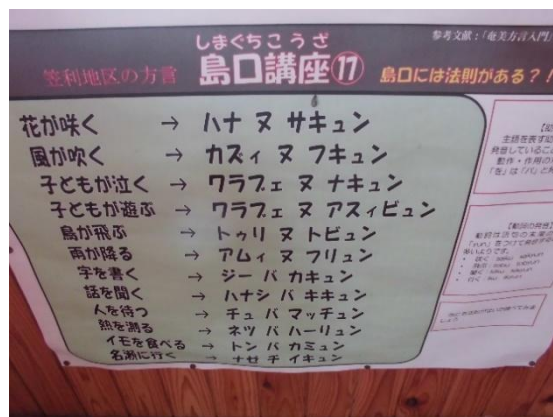 参考文献:「奄美方言入門」
しまぐちこうざ
笠利地区の方言 島口講座⑰ 島口には法則がある?!
花が咲く → ハナ ヌ サキュン
風が吹く → カズィ ヌ フキュン
子どもが泣く → ワラブェ ヌ ナキュン
子どもが遊ぶ → ワラブェ ヌ アスィビュン
鳥が飛ぶ → トゥリ ヌ トビュン
雨が降る → アムィ ヌ フリュン
字を書く → ジー バ カキュン
話を聞く → ハナシ バ キキュン
人を待つ → チュ バ マッチュン
熱を測る → ネツ バ ハーリュン
イモを食べる → トン バ カミュン
名瀬に行く → ナゼ チ イキュン
主語を表す
発音しているこ
動作・作用の
「を」は「バ」と